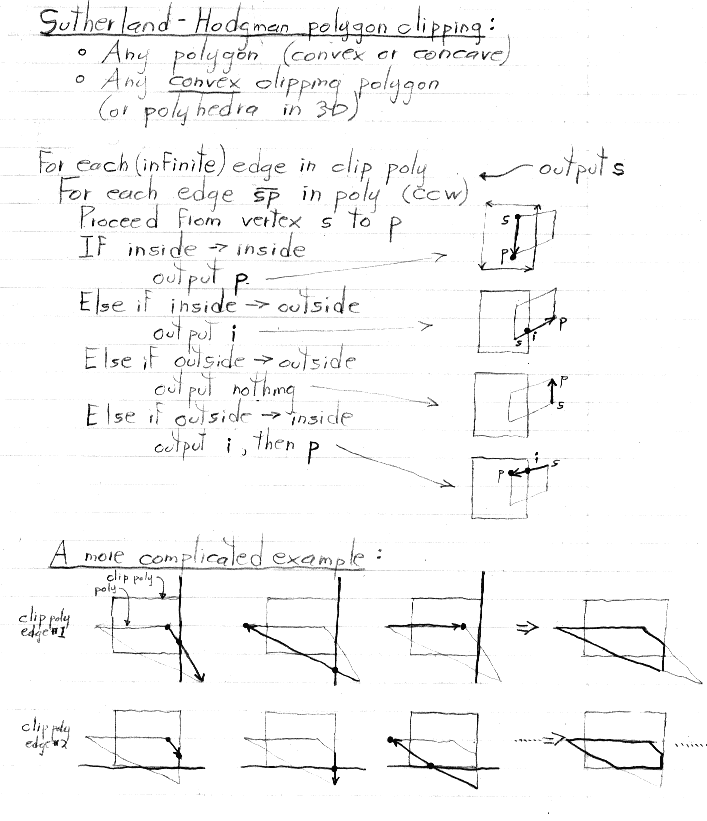 Sutherland-Hodgman polygon clipping:
o Any polygon (convex or concave)
o Any convex clipping polygon
(or polyhedra in 3D)
For each (infinite) edge in clip poly
outputs
For each edge sp in poly (ccw)
Proceed from vertex s to p
If inside → inside
output p
s
p
Else if inside → outside
output i
s i p
Else if outside → outside
output nothing
p
s
Else if outside → inside
output i, then p
p i s
A more complicated example:
clip poly
poly
clip poly
edge #1
⇒
clip poly
edge #2
⇒